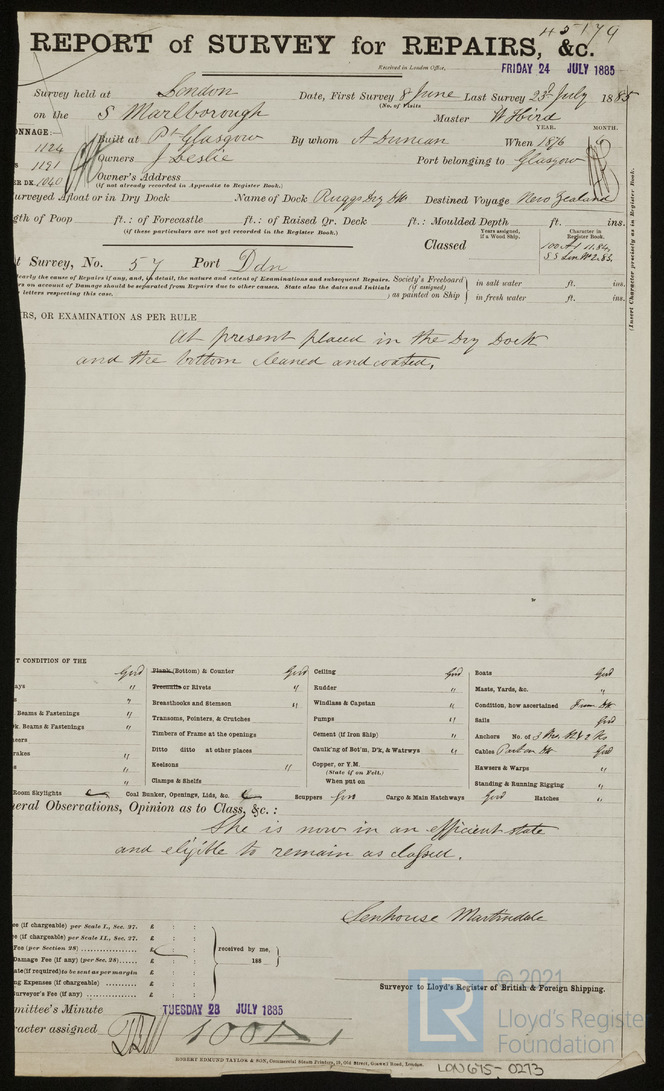 45179
REPORT of SURVEY for REPAIRS, &c.
Received in London Office, FRIDAY 24 JULY 1885
Survey held at London Date, First Survey 8 June Last Survey 23d July 1885
(No. of Visits
on the S Marlborough Master W Hird
ONNAGE: YEAR. MONTH.
1124 Built at Pt Glasgow By whom A Duncan When 1876
1191 Owners J Leslie Port belonging to Glasgow
ER DK. 1040 Owner's Address
(if not already recorded in Appendix to Register Book.)
urveyed Afloat or in Dry Dock Name of Dock Ruggs Dry Dk Destined Voyage New Zealand
gth of Poop ft.: of Forecastle ft.: of Raised Qr. Deck ft.: Moulded Depth ft. ins.
(if these particulars are not yet recorded in the Register Book.)
Years assigned, if a Wood Ship. Character in Register Book.
Classed 100 A1 11.84,
S.S Lon No 2. 83,
t Survey, No. 57 Port Ddn
(Insert Character precisely as in Register Book.
learly the cause of Repairs if any, and, in detail, the nature and extent of Examinations and subsequent Repairs.
rs on account of Damage should be separated from Repairs due to other causes. State also the dates and Initials
letters respecting this case.
Society's Freeboard (if assigned) as painted on Ship in salt water ft. ins.
in fresh water ft. ins.
IRS, OR EXAMINATION AS PER RULE
At present placed in the Dry Dock
and the bottom cleaned and coated,
T CONDITION OF THE
Good Plank (Bottom) & Counter Good Ceiling Good Boats Good
ays " Treenails or Rivets " Rudder " Masts, Yards, &c. "
s " Breasthooks and Stemson " Windlass & Capstan " Condition, how ascertained From Dk
Beams & Fastenings " Transoms, Pointers, & Crutches Pumps " Sails Good
k. Beams & Fastenings " Timbers of Frame at the openings Cement (if Iron Ship) " Anchors No. of 3 Brs.
eers Ditto ditto at other places Caulk'ng of Bot'm, D'k, & Watrwys " Cables Part on Dk Good
rakes " Keelsons " Copper, or Y.M. Hawsers & Warps "
s " (State if on Felt.)
" Clamps & Shelfs When put on Standing & Running Rigging "
Room Skylights Coal Bunker, Openings, Lids, &c. Scuppers Good Cargo & Main Hatchways Good Hatches "
neral Observations, Opinion as to Class, &c. :
She is now in an efficient state
and eligible to remain as classed.
Senhouse Martindale
ee (if chargeable) per Scale I., Sec. 27. £ : :
ee (if chargeable) per Scale II., Sec. 27. £ : :
Fee (per Section 28) £ : : received by me,
Damage Fee (if any) (per Sec. 28) £ : : 188
ate (if required) to be sent as per margin
ng Expenses (if chargeable) £ : :
urveyor's Fee (if any) £ : :
Surveyor to Lloyd's Register of British & Foreign Shipping.
mittee's Minute TUESDAY 28 JULY 1885
racter assigned 100A1
ROBERT EDMUND TAYLOR & SON, Commercial Steam Printers, 19, Old Street, Goswell Road, London.
LR
© 2021
Lloyd's Register
Foundation
LON675-0273